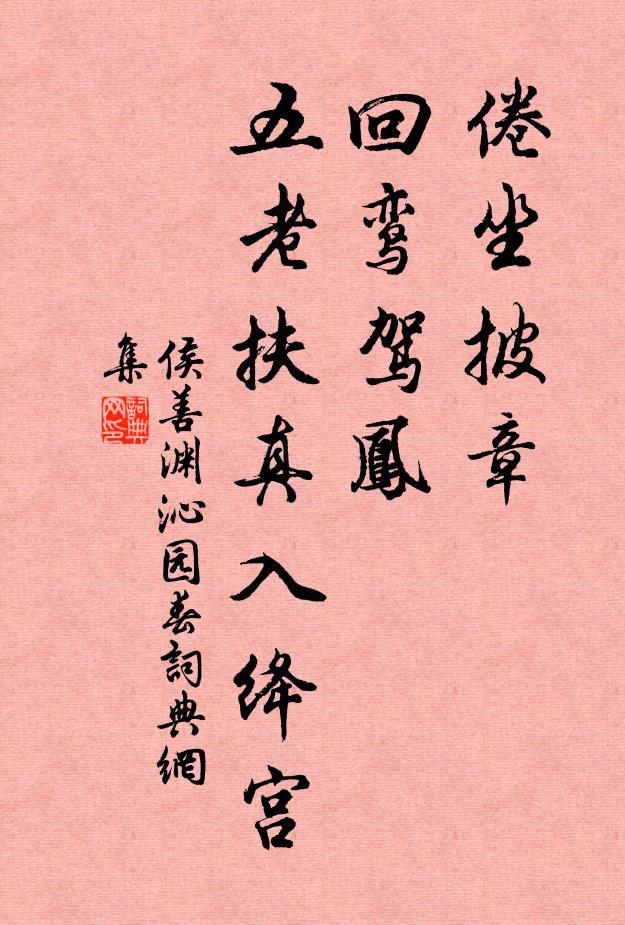 倦坐披章
回鸾駕鳳
五老扶真入绛宫
侯善渊沁园春詞典網
集
詞典
网印